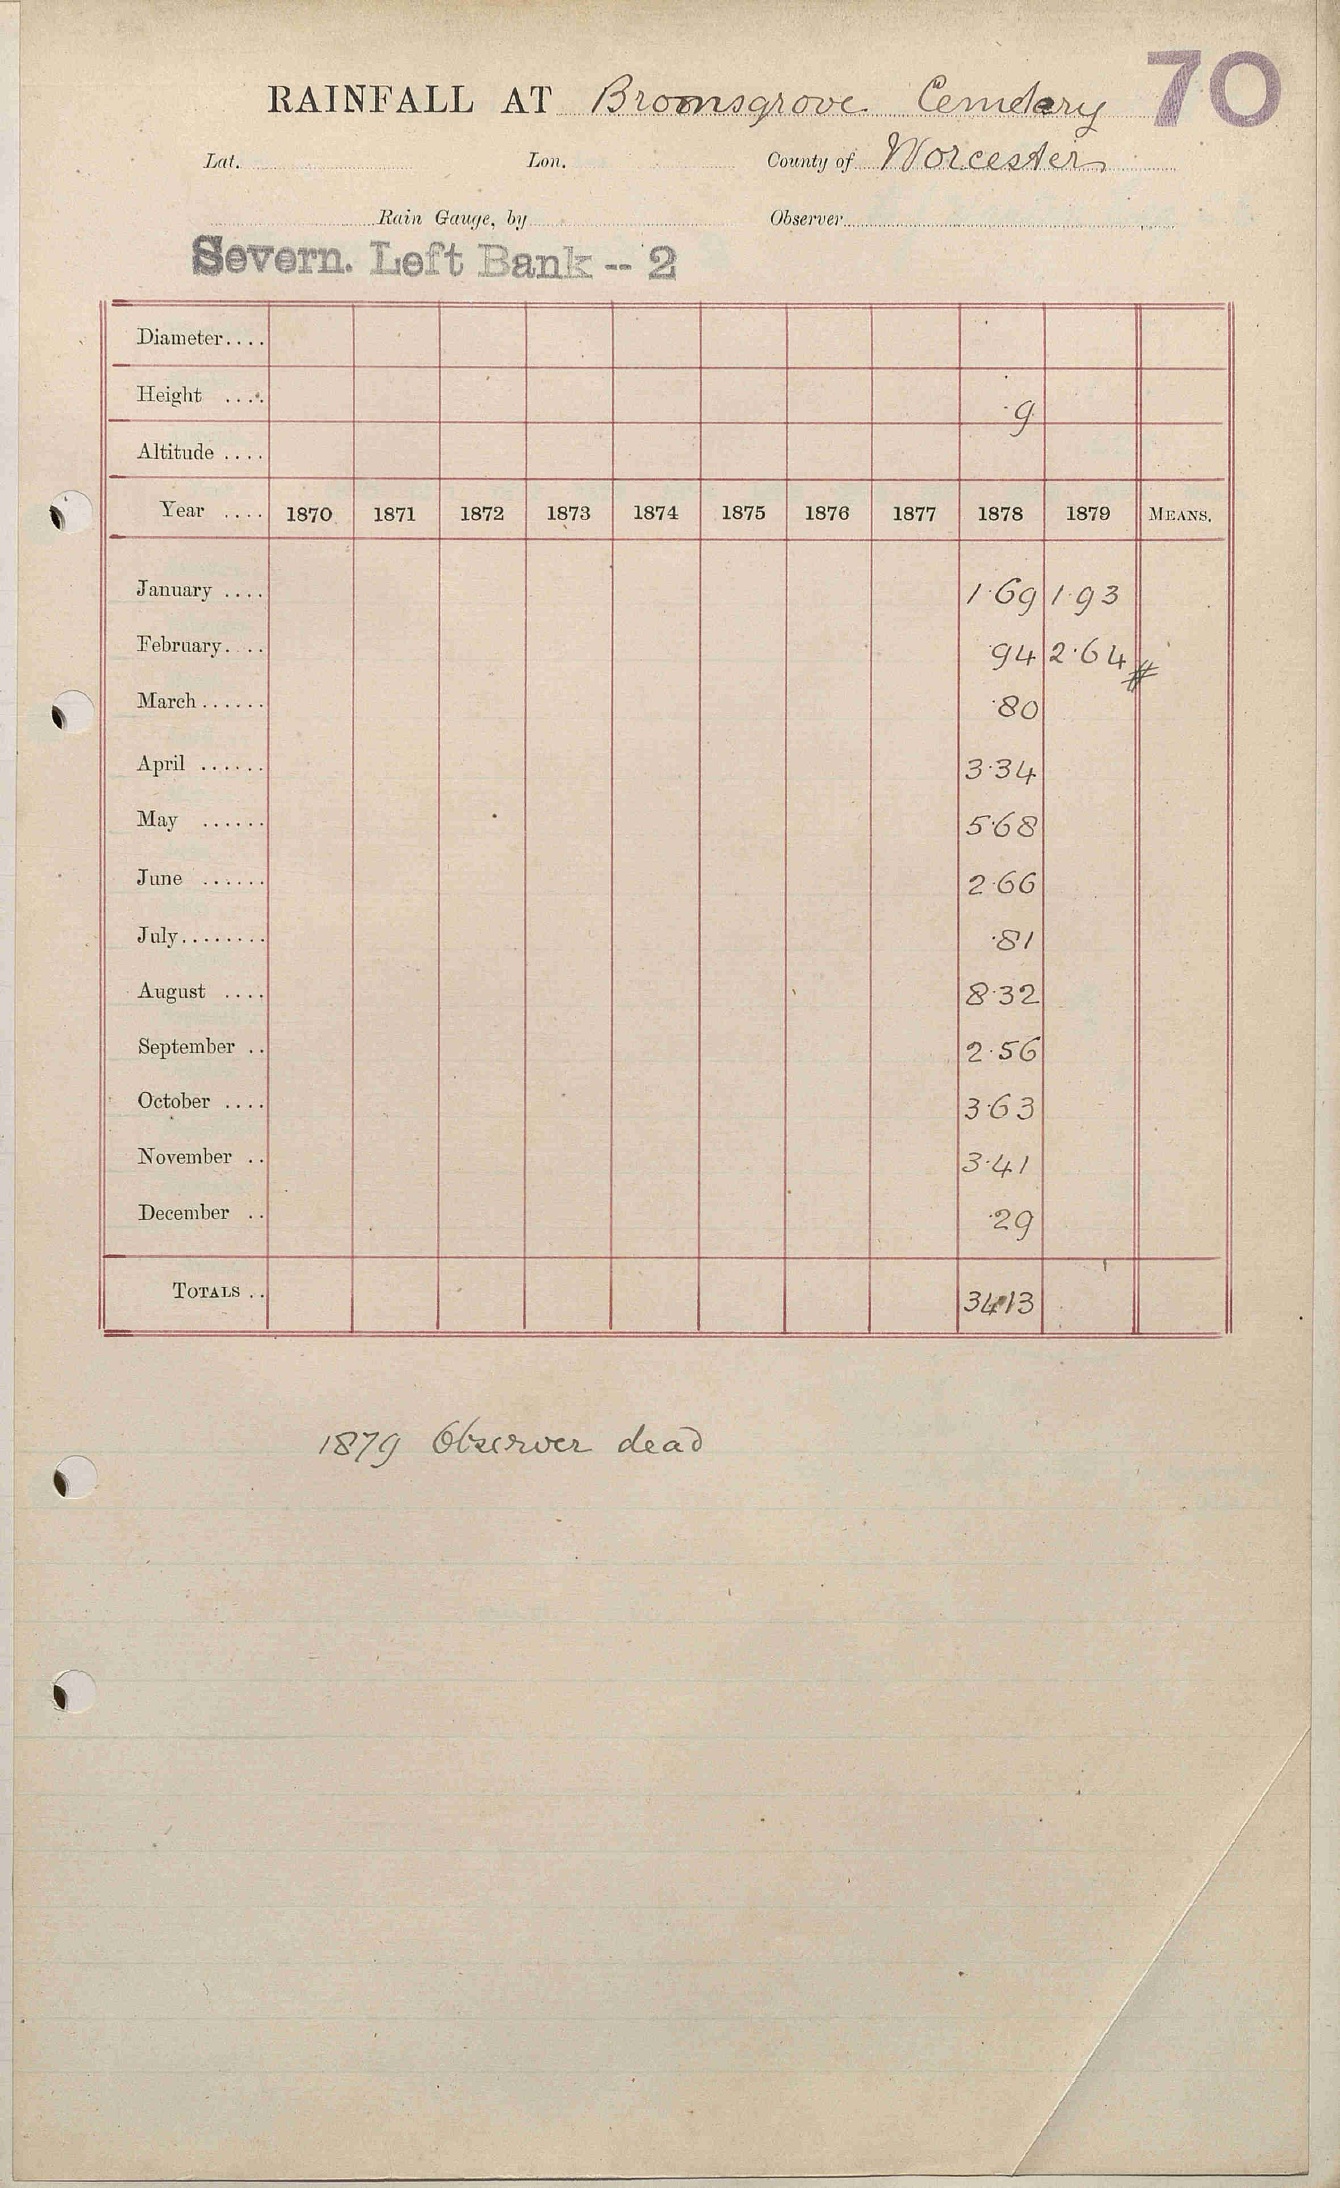 70
RAINFALL AT Bromsgrove Cemetery
Lat. Lon. County of Worcester
Rain Gauge, by Observer
Severn. Left Bank -- 2
Diameter....
Height .... ·9
Altitude ....
Year .... 1870 1871 1872 1873 1874 1875 1876 1877 1878 1879 MEANS.
January .... 1·69 1·93
February.... ·94 2·64 #
March...... ·80
April ...... 3·34
May ...... 5·68
June ...... 2·66
July........ ·81
August .... 8·32
September .. 2·56
October .... 3·63
November .. 3·41
December .. ·29
TOTALS .. 34·13
1879 Observer dead